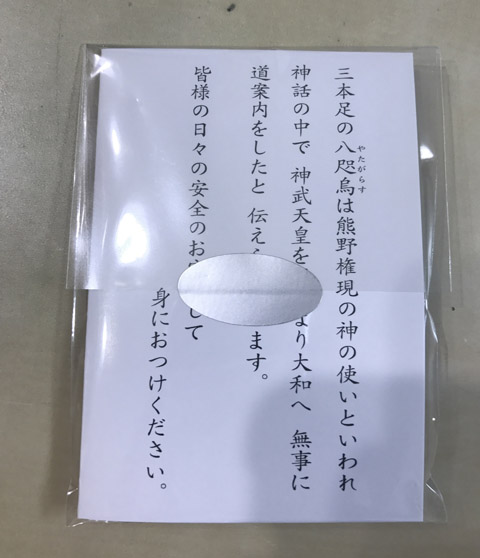 三本足の八咫烏は熊野権現の神の使いといわれ
やたがらす
神話の中で 神武天皇を より大和へ 無事に
道案内をしたと 伝え ます。
皆様の日々の安全のお して
身におつけください。